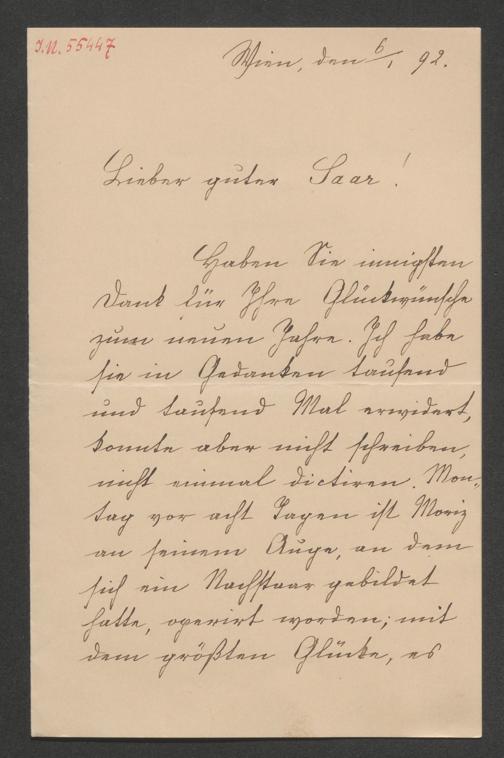 I.N. 55447
Wien, den 6/1 92.
Lieber guter Saar!
Haben Sie innigsten
Dank für Ihre Glückwünsche
zum neuen Jahre. Ich habe
sie in Gedanken tausend
und tausend Mal erwidert,
konnte aber nicht schreiben,
nicht einmal dictiren. Mon-
tag vor acht Tagen ist Moriz
an seinem Auge, an dem
sich ein Nachstaar gebildet
hatte, operirt worden; mit
dem größten Glücke, es